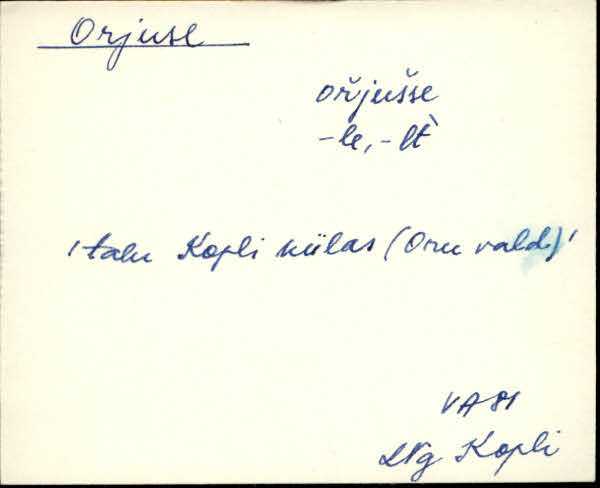 Orjuse
oŕjušse
-le, -lt̀
'talu Kopli külas (Oru vald)'
VA 81
LNg Kopli